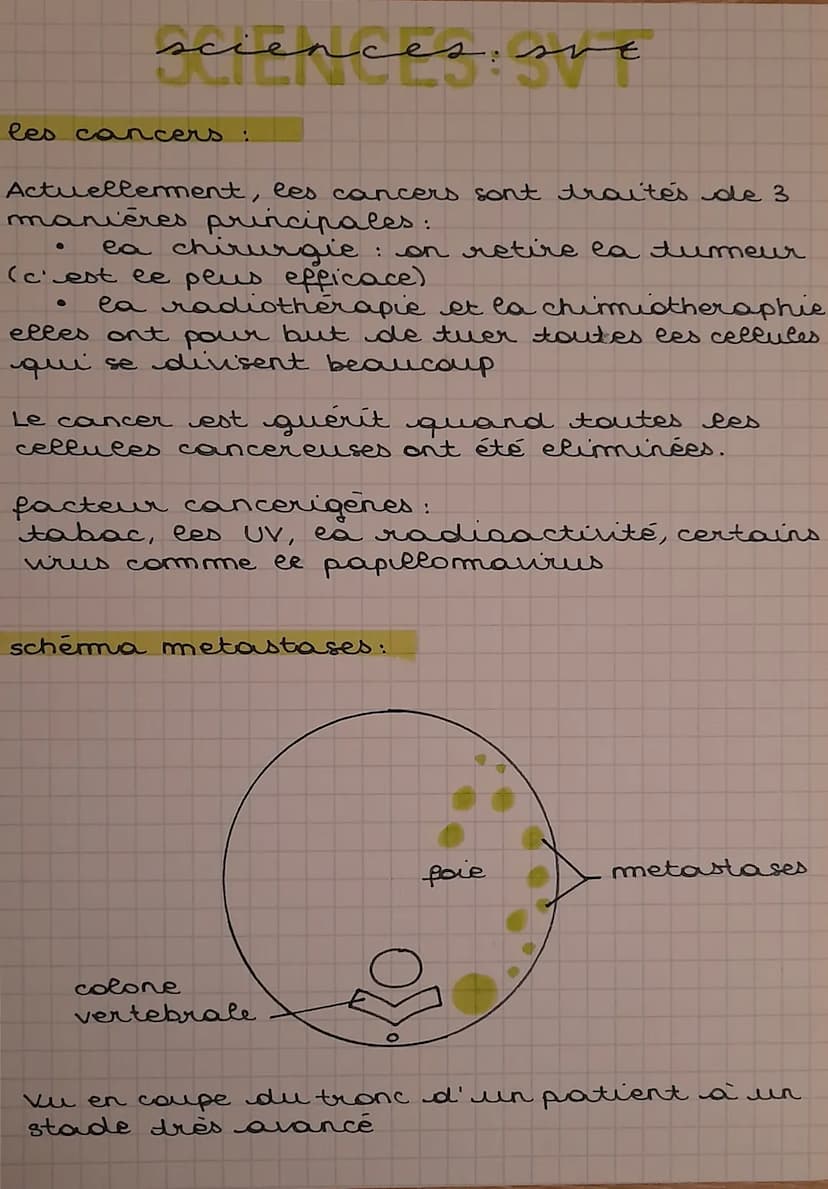 sciences: svt
SCIENCES: SVT
les cancers :
Actuellement, les cancers sont traités de 3
manières principales :
• la chirurgie : on retire la tumeur
(c'est le plus efficace)
• la radiothérapie et la chimiotheraphie
elles ont pour but de tuer toutes les cellules
qui se divisent beaucoup
Le cancer est guérit quand toutes les
cellules cancereuses ont été eliminées.
facteur cancerigènes :
tabac, les UV, la radioactivité, certains
virus comme le papillomavirus
schéma metastases:
foie
metastases
colone
vertebrale
Vu en coupe du tronc d'un patient à un
stade très avancé